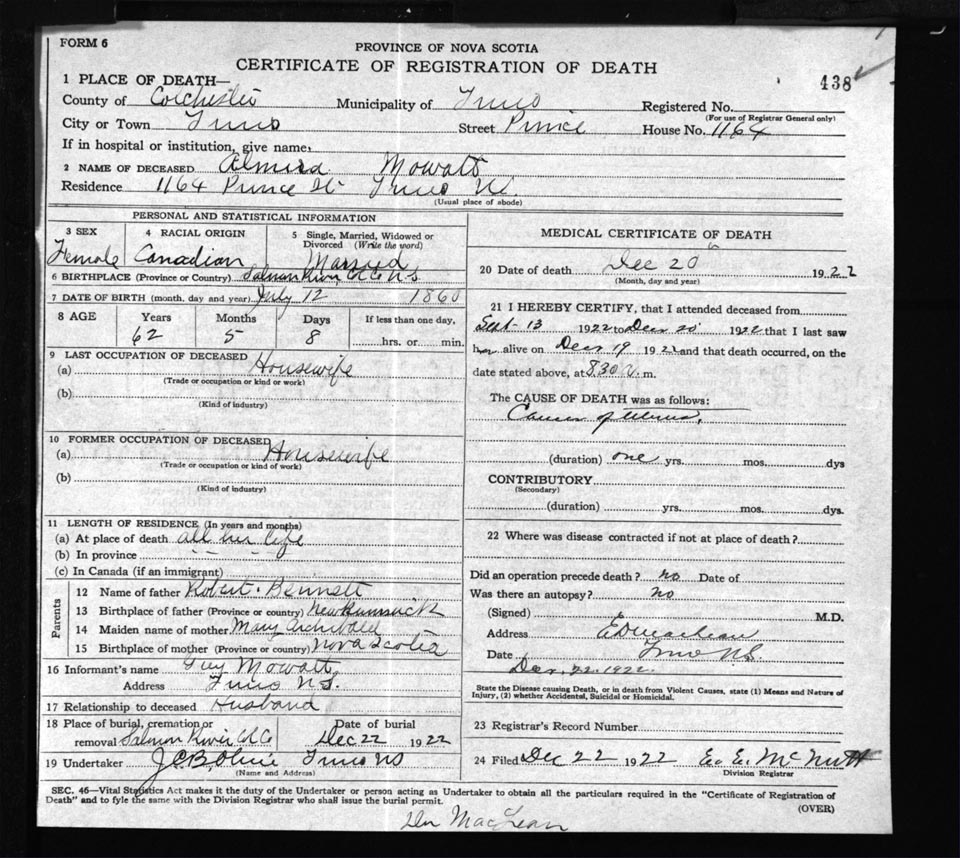 FORM 6
PROVINCE OF NOVA SCOTIA
CERTIFICATE OF REGISTRATION OF DEATH
438
1 PLACE OF DEATH—
County of Colchester Municipality of Truro Registered No.
(For use of Registrar General only)
City or Town Truro Street Prince House No. 1164
If in hospital or institution, give name
2 NAME OF DECEASED Almira Mowatt
Residence 1164 Prince St Truro N.S.
(Usual place of abode)
PERSONAL AND STATISTICAL INFORMATION
3 SEX 4 RACIAL ORIGIN 5 Single, Married, Widowed or Divorced (Write the word)
Female Canadian Married
6 BIRTHPLACE (Province or Country) Salmon River Col Co N.S
7 DATE OF BIRTH (month, day and year) July 12 1860
8 AGE Years Months Days If less than one day,
62 5 8 hrs. or min.
9 LAST OCCUPATION OF DECEASED
(a) Housewife
(Trade or occupation or kind or work)
(b)
(Kind of industry)
10 FORMER OCCUPATION OF DECEASED
(a) Housewife
(Trade or occupation or kind of work)
(b)
(Kind of industry)
11 LENGTH OF RESIDENCE (In years and months)
(a) At place of death all her life
(b) In province
(c) In Canada (if an immigrant)
Parents
12 Name of father Robert Bennett
13 Birthplace of father (Province or country) New Brunswick
14 Maiden name of mother Mary Archibald
15 Birthplace of mother (Province or country) Nova Scotia
16 Informant's name Guy Mowatt
Address Truro N.S.
17 Relationship to deceased Husband
18 Place of burial, cremation or Date of burial
removal Salmon River Col Co Dec 22 1922
19 Undertaker Truro NS
(Name and Address)
MEDICAL CERTIFICATE OF DEATH
20 Date of death Dec 20 1922
(Month, day and year)
21 I HEREBY CERTIFY, that I attended deceased from
Sept 13 1922 to Dec 20 1922 that I last saw
her alive on Dec 19 1922 and that death occurred, on the
date stated above, at 830 a.m.
The CAUSE OF DEATH was as follows:
Cancer of Uterus,
(duration) one yrs. mos. dys
CONTRIBUTORY
(Secondary)
(duration) yrs. mos. dys.
22 Where was disease contracted if not at place of death?
Did an operation precede death? no Date of
Was there an autopsy? no
(Signed) M.D.
Address Truro N.S.
Date Dec. 22. 1922.
State the Disease causing Death, or in death from Violent Causes, state (1) Means and Nature of
Injury, (2) whether Accidental, Suicidal or Homicidal.
23 Registrar's Record Number
24 Filed Dec 22 1922 E. E. McNutt
Division Registrar
SEC. 46—Vital Statistics Act makes it the duty of the Undertaker or person acting as Undertaker to obtain all the particulars required in the "Certificate of Registration of
Death" and to fyle the same with the Division Registrar who shall issue the burial permit.
(OVER)
Dr MacLean